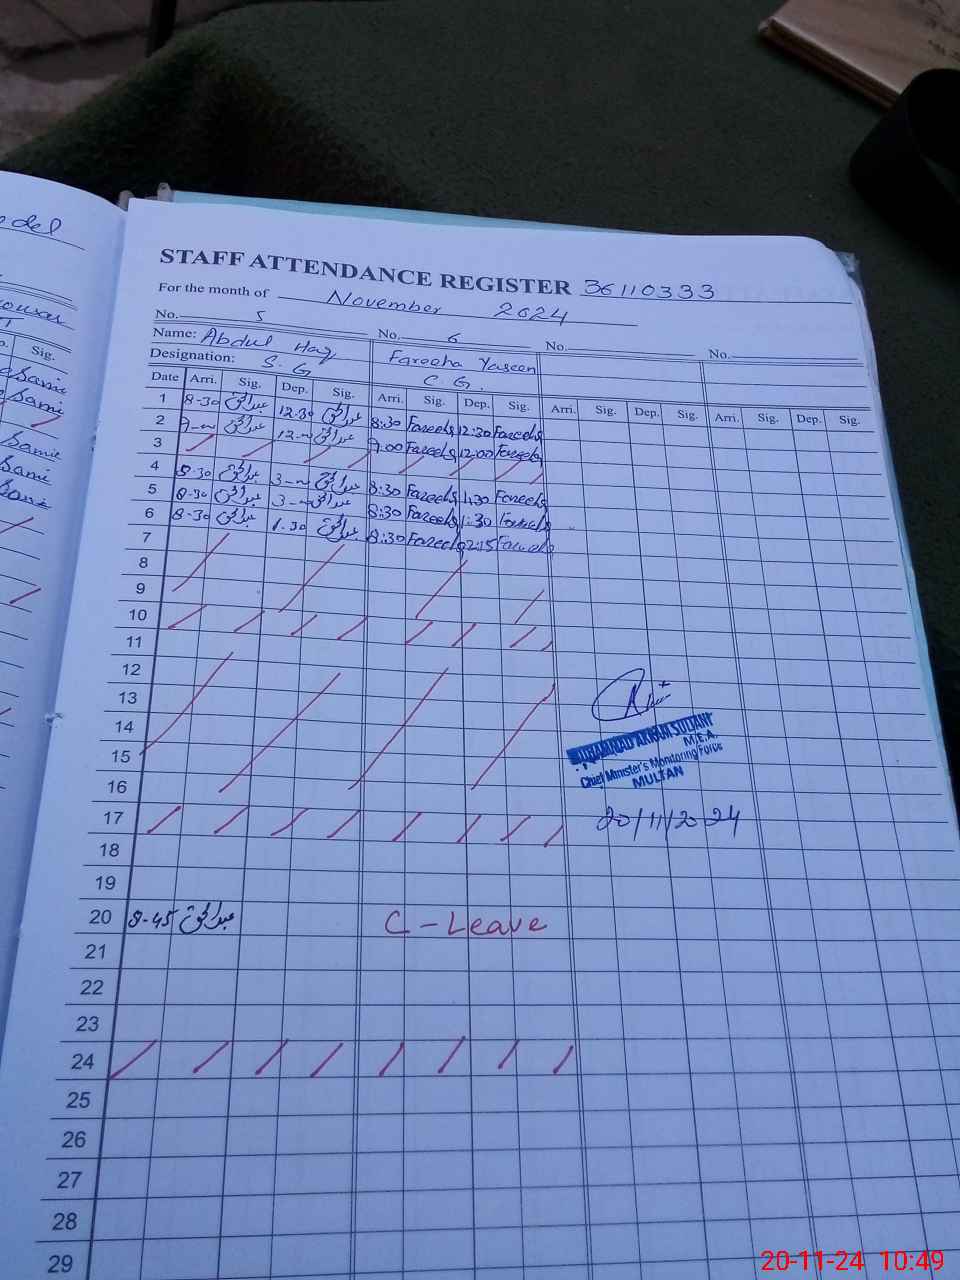 del
Sig.
Sami
Sami
Samie
Sami
Sami
STAFF ATTENDANCE REGISTER 36110333
For the month of November 2024
No. 5 No. 6 No. No.
Name: Abdul Haq Fareeha Yaseen
Designation: S. G C. G.
Date Arri. Sig. Dep. Sig. Arri. Sig. Dep. Sig. Arri. Sig. Dep. Sig. Arri. Sig. Dep. Sig.
1 8-30 عبدالحق 12-30 عبدالحق 8:30 Fareeha 12:30 Fareeha
2 عبدالحق عبدالحق 9:00 Fareeha 12:00 Fareeha
3
4 8-30 عبدالحق عبدالحق 8:30 Fareeha 1:30 Fareeha
5 8-30 عبدالحق عبدالحق 8:30 Fareeha 1:30 Fareeha
6 8-30 عبدالحق 1-30 عبدالحق 8:30 Fareeha 2:15 Fareeha
7
8
9
10
11
12
13
14
15
16
MUHAMMAD AKRAM SULTANI
M.E.A.
Chief Minister's Monitoring Force
MULTAN
17 20/11/2024
18
19
20 8-45 عبدالحق C - Leave
21
22
23
24
25
26
27
28
29
20-11-24 10:49